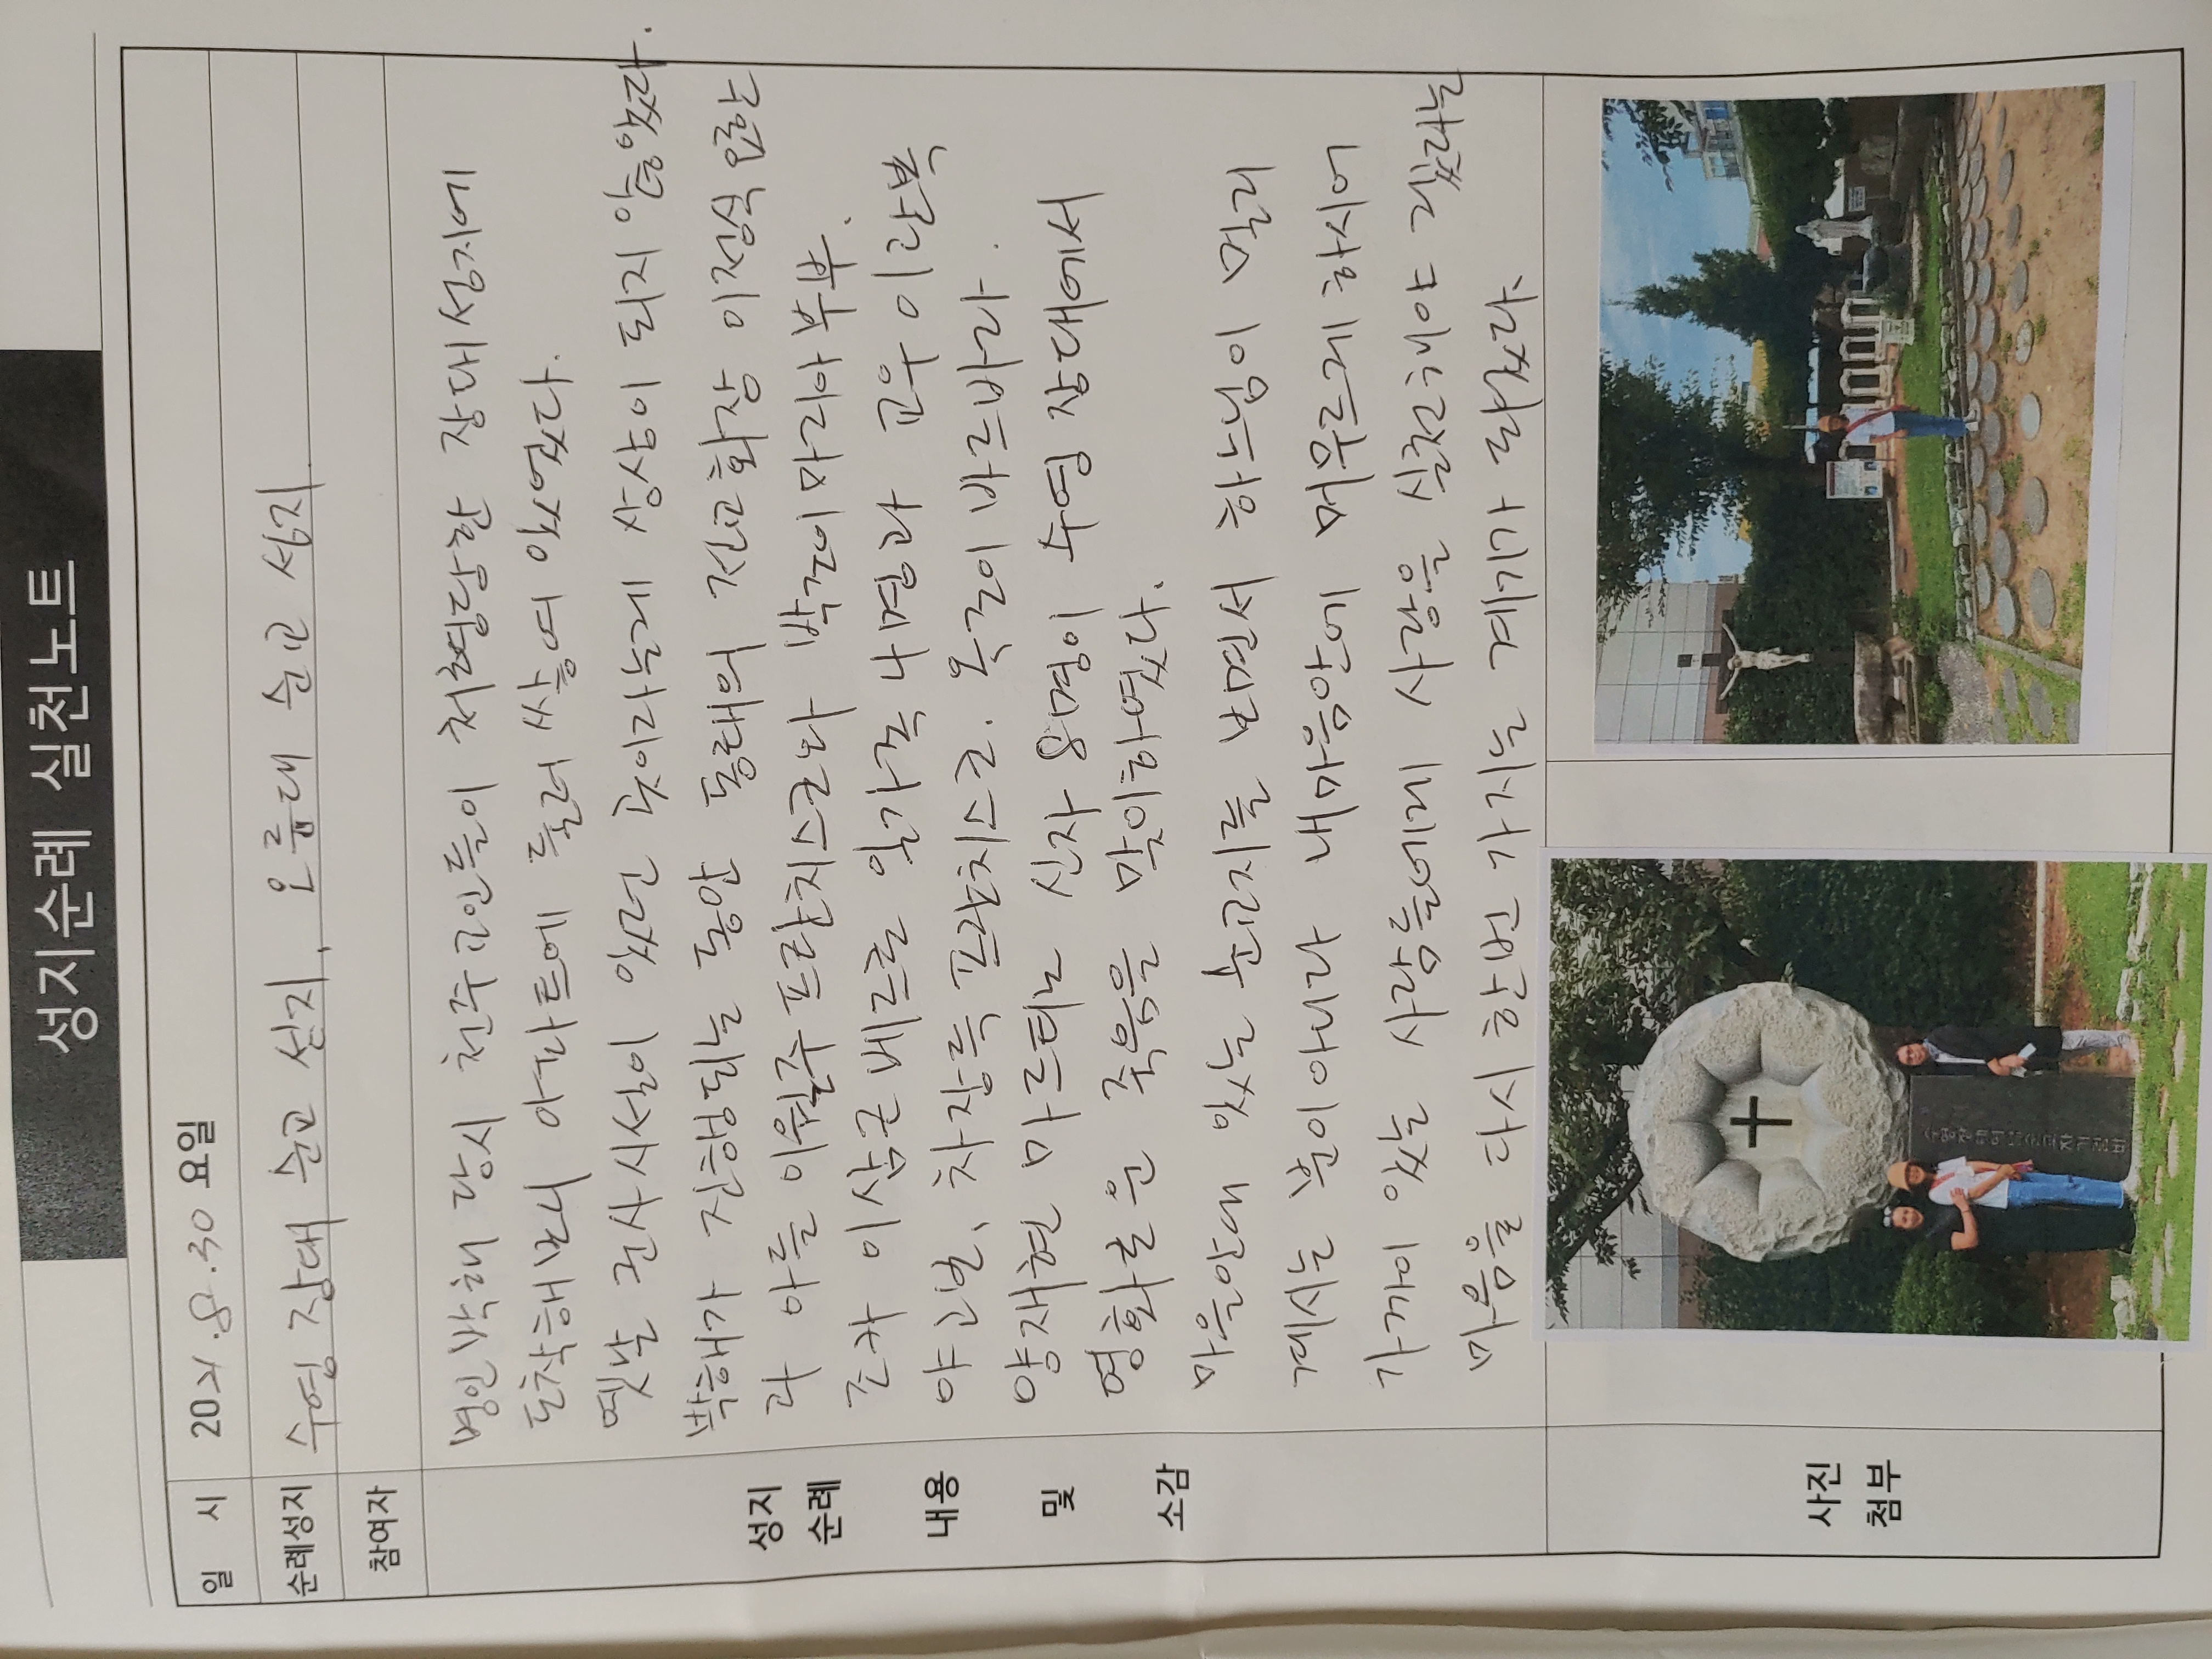 성지순례 실천노트
일 시 2021.8.30 요일
순례성지 수영 장대 순교 성지, 오륜대 순교 성지
참여자
병인박해 당시 천주교인들이 처형당한 장대성지에
도착해보니 아파트에 둘러 쌓여 있었다.
옛날 군사시설이 있던 곳이라는게 상상이 되지 않았다.
박해가 진행되는 동안 동래의 전교회장 이정식 요한
과 아들 이월주 프란치스코와 박조이 마리아 부부.
조카 이삼근 베드로 일가족 4명과 교우 이관복
야고보, 차장득 프란치스코. 옥조이 바르바라.
양재현 마르티노 신자 8명이 수영 장대에서
영화로운 죽음을 맞이하였다.
마을안에 있는 순교지를 보면서 하느님이 멀리
계시는 분이아니라 내마음안에 머무르게 하시어
가까이 있는 사람들에게 사랑을 실천해야 겠다는
마음을 다시 한번 가지는 계기가 되었다.
성지
순례
내용
및
소감
사진
첨부
수영장대여덟순교자기념비